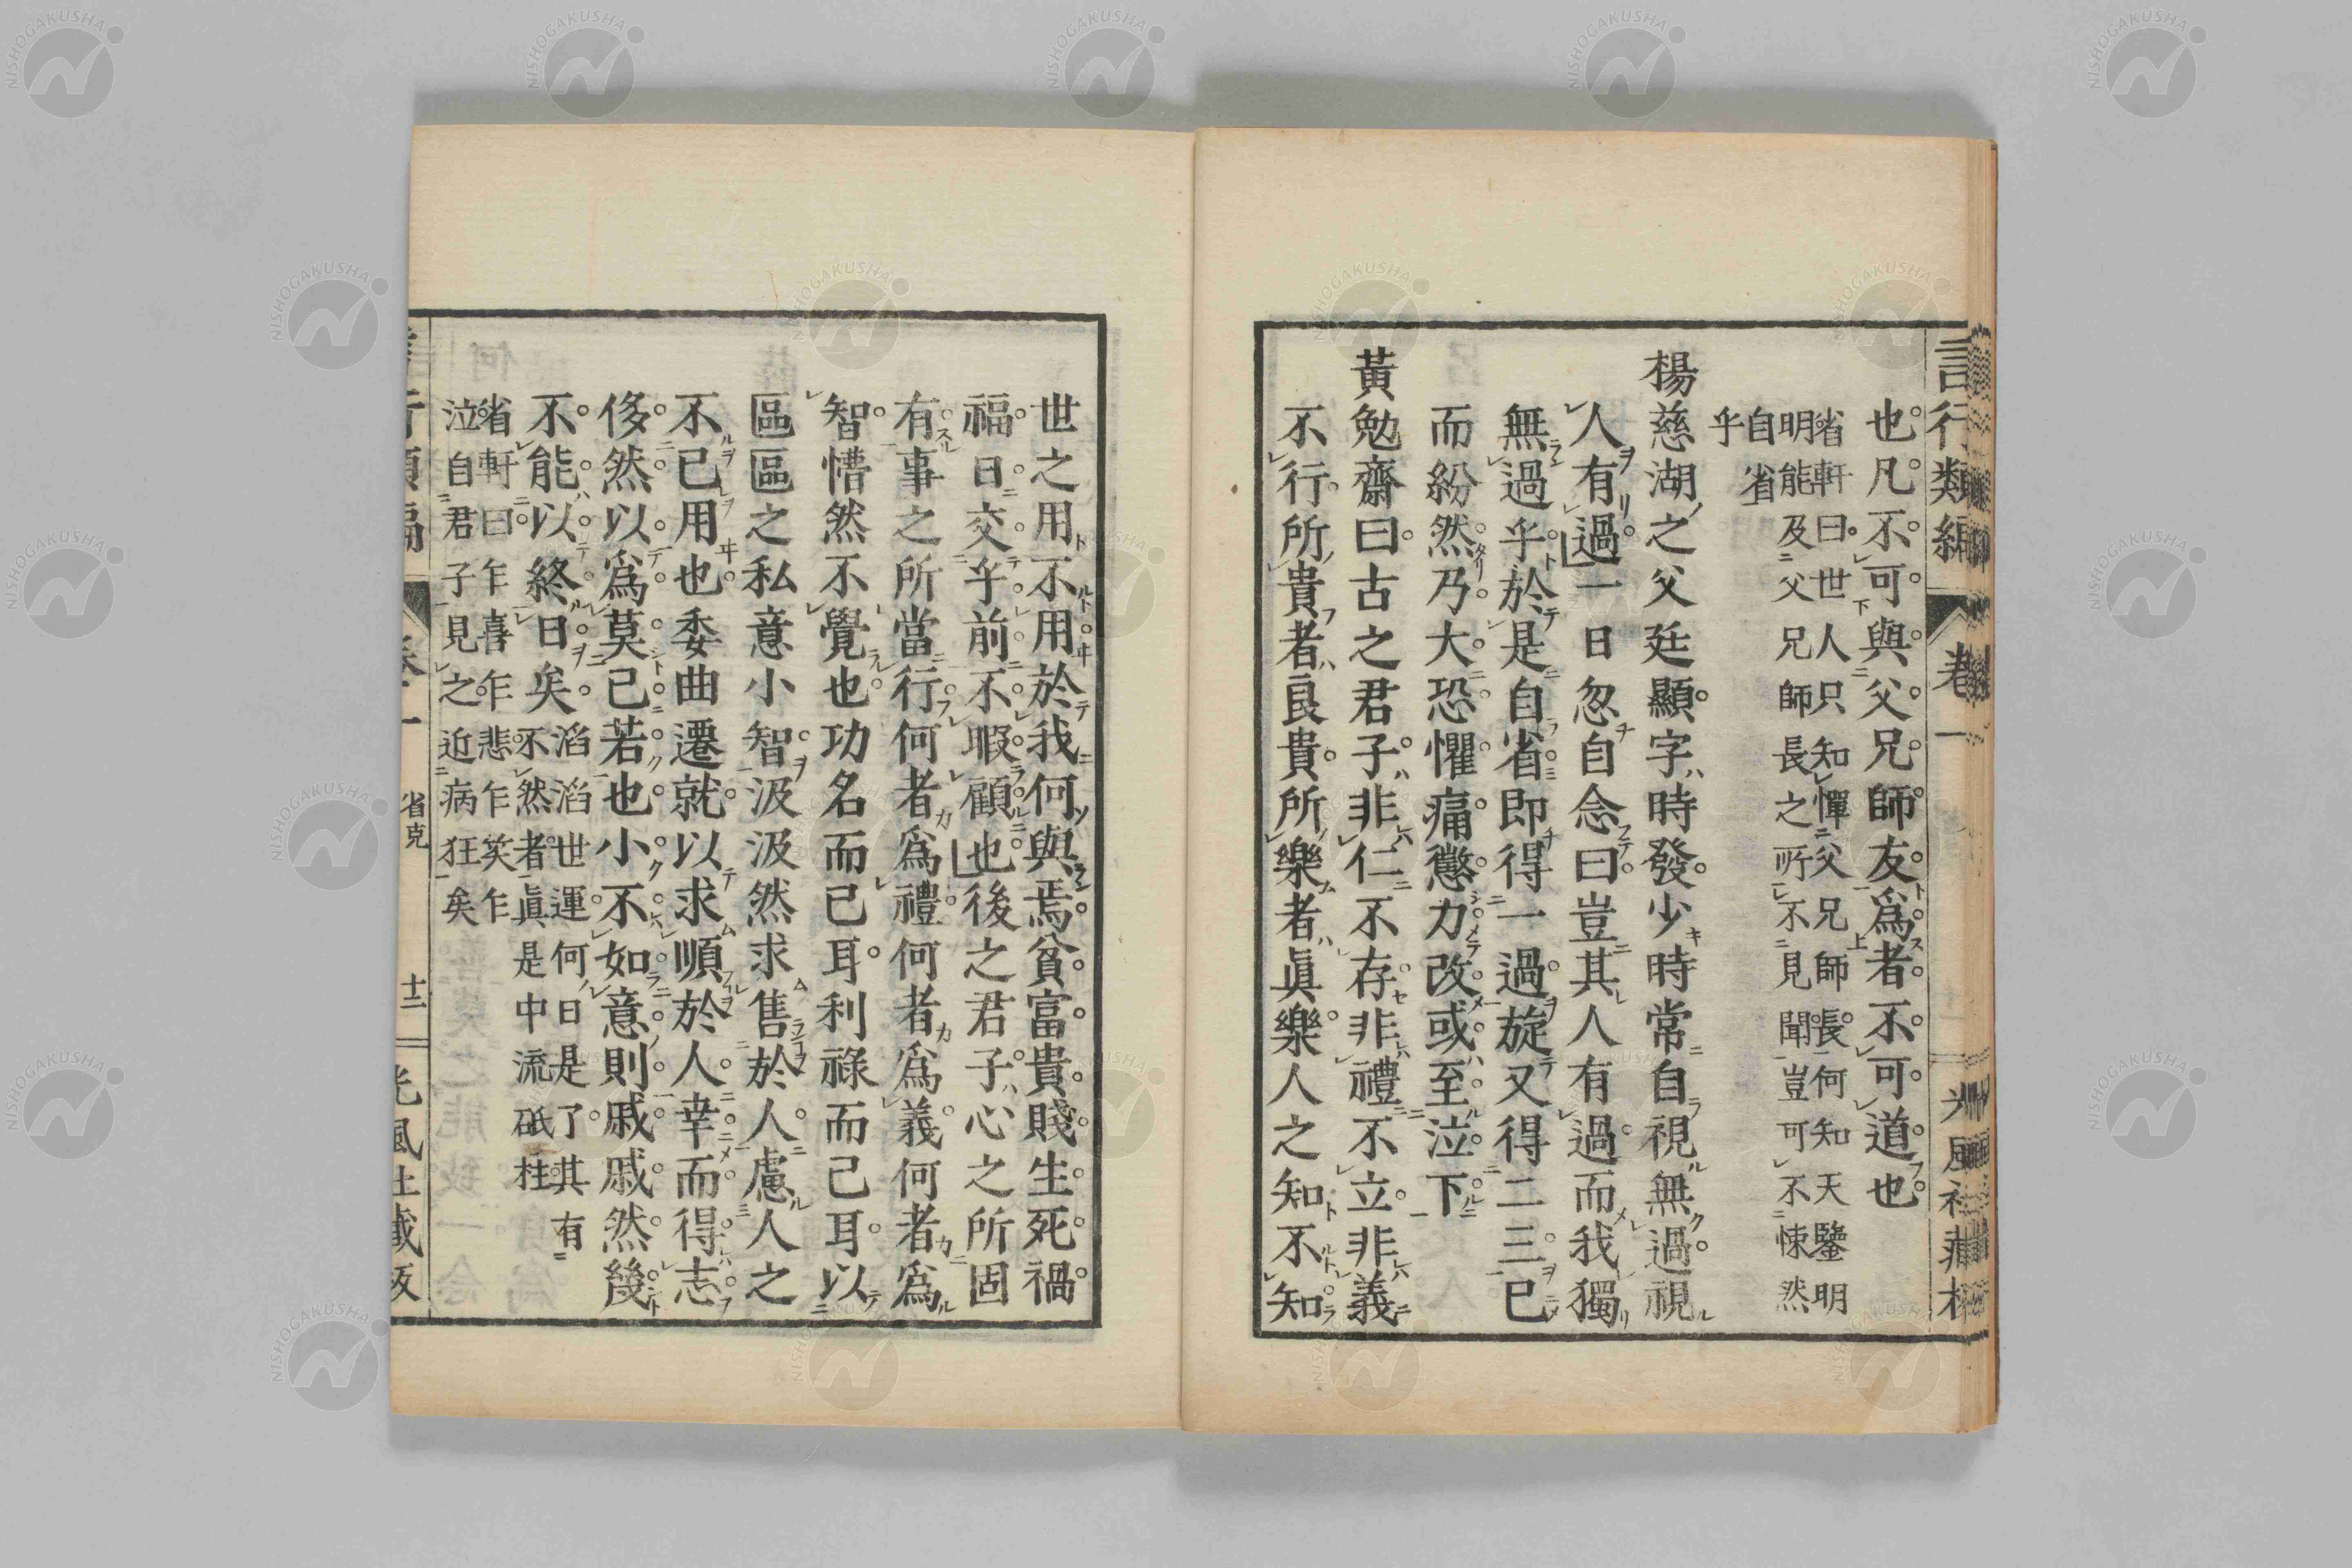 言行類編 卷一
也凡不可與父兄師友爲者不可道也
省軒曰世人只知憚父兄師長何知天鑒明
明能及父兄師長之所不見聞豈可不悚然
自省
乎
楊慈湖之父廷顯字時發少時常自視無過視
人有過一日忽自念曰豈其人有過而我獨
無過乎於是自省即得一過旋又得二三已
而紛然乃大恐懼痛懲力改或至泣下
黃勉齋曰古之君子非仁不存非禮不立非義
不行所貴者良貴所樂者眞樂人之知不知
世之用不用於我何與焉貧富貴賤生死禍
福日交乎前不暇顧也後之君子心之所固
有事之所當行何者爲禮何者爲義何者爲
智懵然不覺也功名而已耳利祿而已耳以
區區之私意小智汲汲然求售於人慮人之
不已用也委曲遷就以求順於人幸而得志
侈然以爲莫己若也小不如意則戚戚然幾
不能以終日矣
滔滔世運何日是了其有
不然者眞是中流砥柱
省軒曰乍喜乍悲乍笑乍
泣自君子見之近病狂矣
省克
十二
光風社藏板
NISHOGAKUSHA